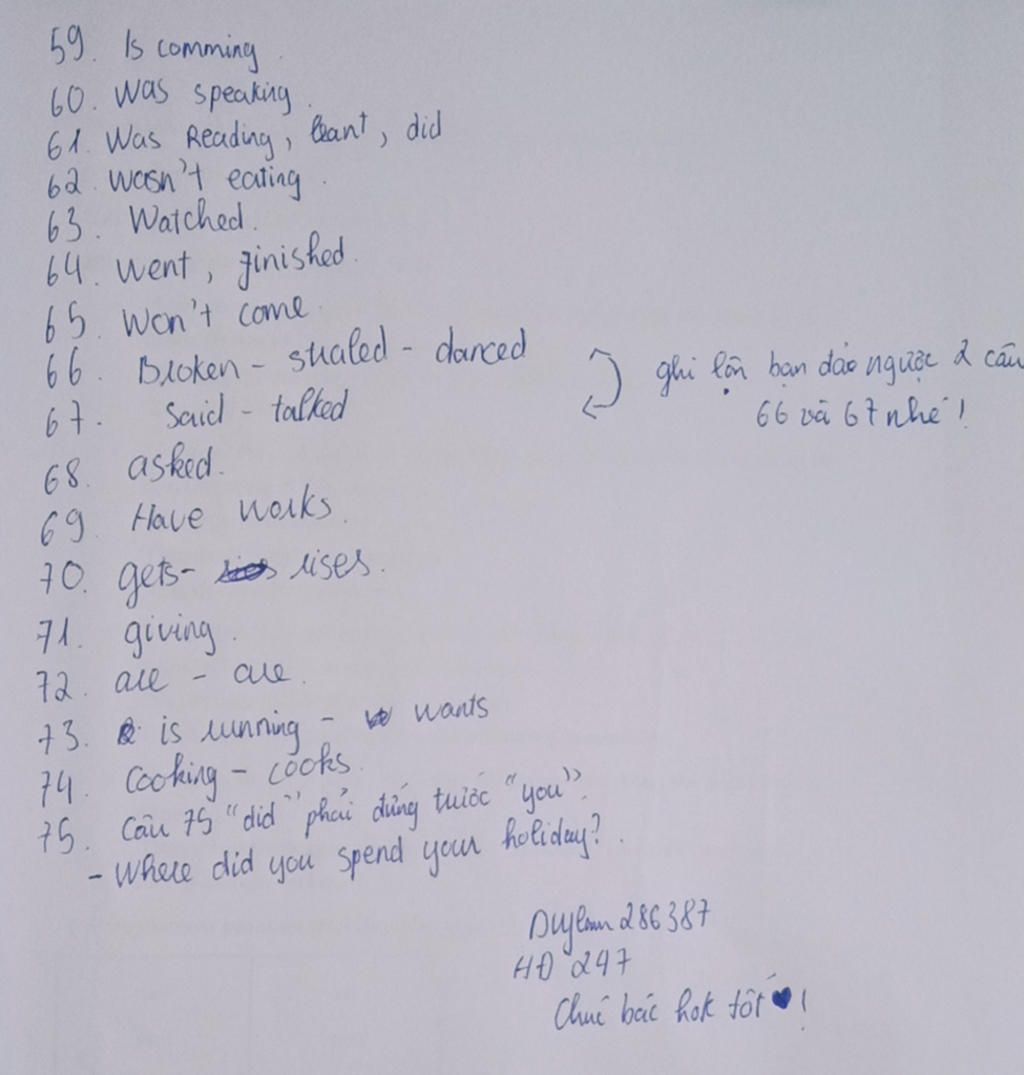 59. Is comming.
60. Was speaking.
61. Was Reading, leant, did
62. wasn't eating.
63. Watched.
64. Went, finished.
65. Won't come.
66. Broken - - danced
67. Said - talked
ghi lộn bạn đảo ngược 2 câu
66 và 67 nhé!
68. asked.
69. Have works.
70. gets - rises.
71. giving.
72. are - are.
73. is running - wants
74. Cooking - cooks.
75. Câu 75 "did" phải đứng trước "you".
- Where did you spend your holiday?.
Duylam286387
HĐ 247
Chúc bác hok tốt ♥!